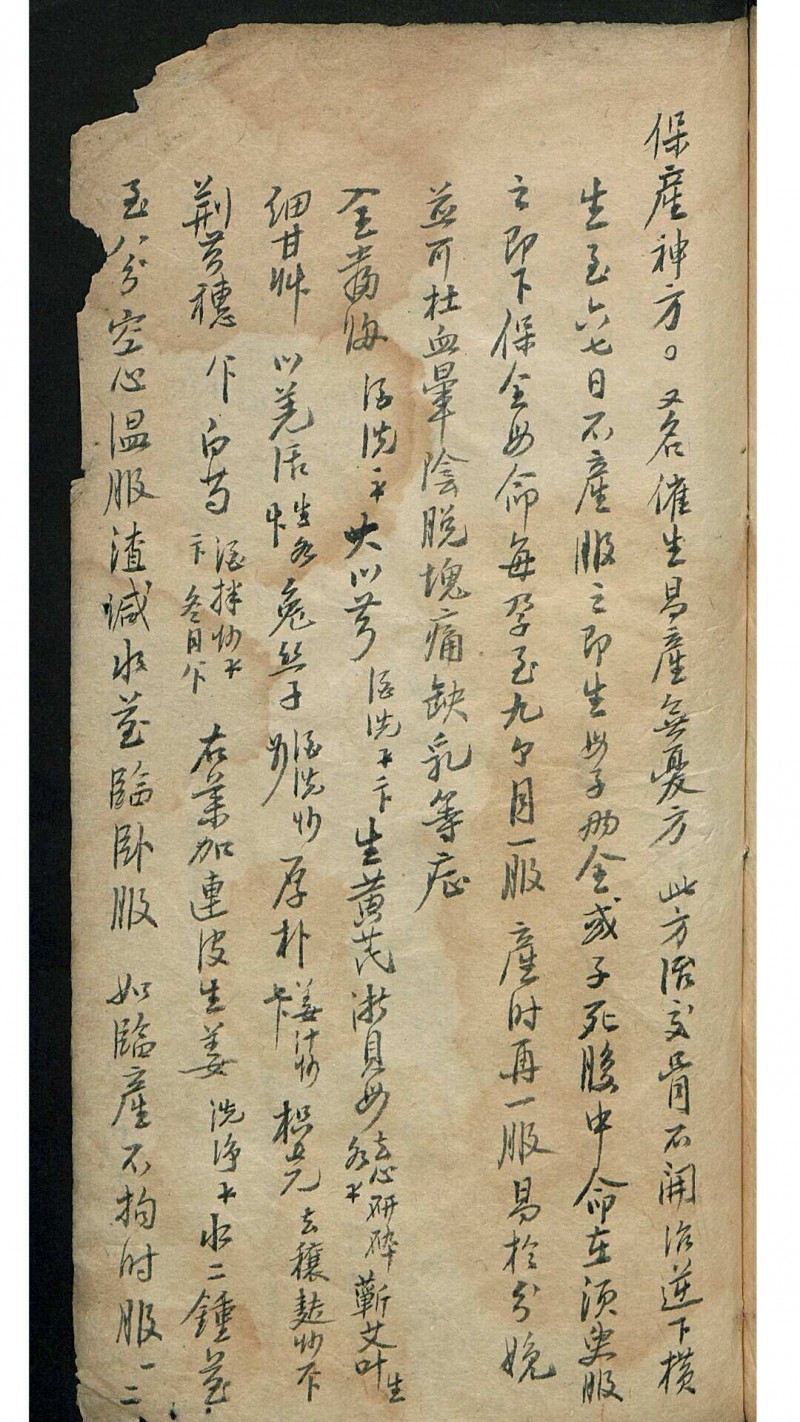 保産神方。又名催生易産無憂方 此方治交骨不開治逆下横
生至六七日不産服之即生母子両全或子死腹中命在須臾服
之即下保全母命每孕至九个月一服 産时再一服易於分娩
並可杜血暈陰脱塊痛缺乳等症
全當归 酒洗 大川芎 酒洗 生黄芪 淅貝母 去心研碎 蘄艾叶 生
细甘艸 川羌活 生 兔丝子 酒洗炒 厚朴 姜汁炒 枳壳 去穰麸炒
荆芥穗 白芍 酒拌炒 冬月 右藥加連皮生姜 洗净 水二鍾煎
至八分空心温服渣诚水煎臨卧服 如臨産不拘时服一二